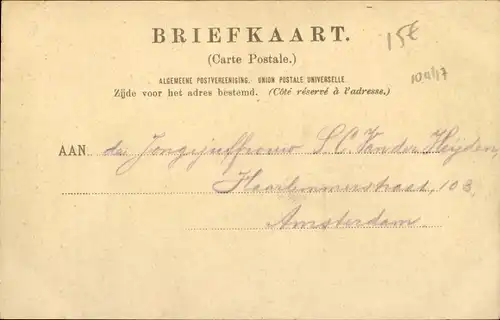 BRIEFKAART.
15€
(Carte Postale.)
ALGEMEENE POSTVEREENIGING. UNION POSTALE UNIVERSELLE.
Zijde voor het adres bestemd. (Côté réservé à l'adresse.)
AAN de Jongejuffrouw S. C. Van der Heijden,
Haarlemmerstraat, 103.
Amsterdam.